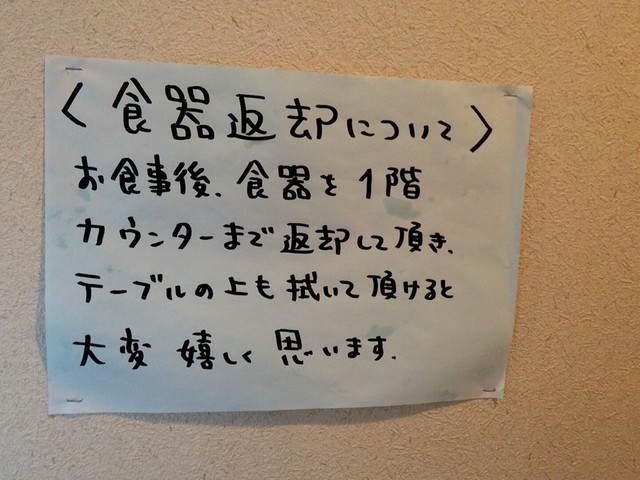 〈食器返却について〉
お食事後、食器を1階
カウンターまで返却して頂き、
テーブルの上も拭いて頂けると
大変嬉しく思います.